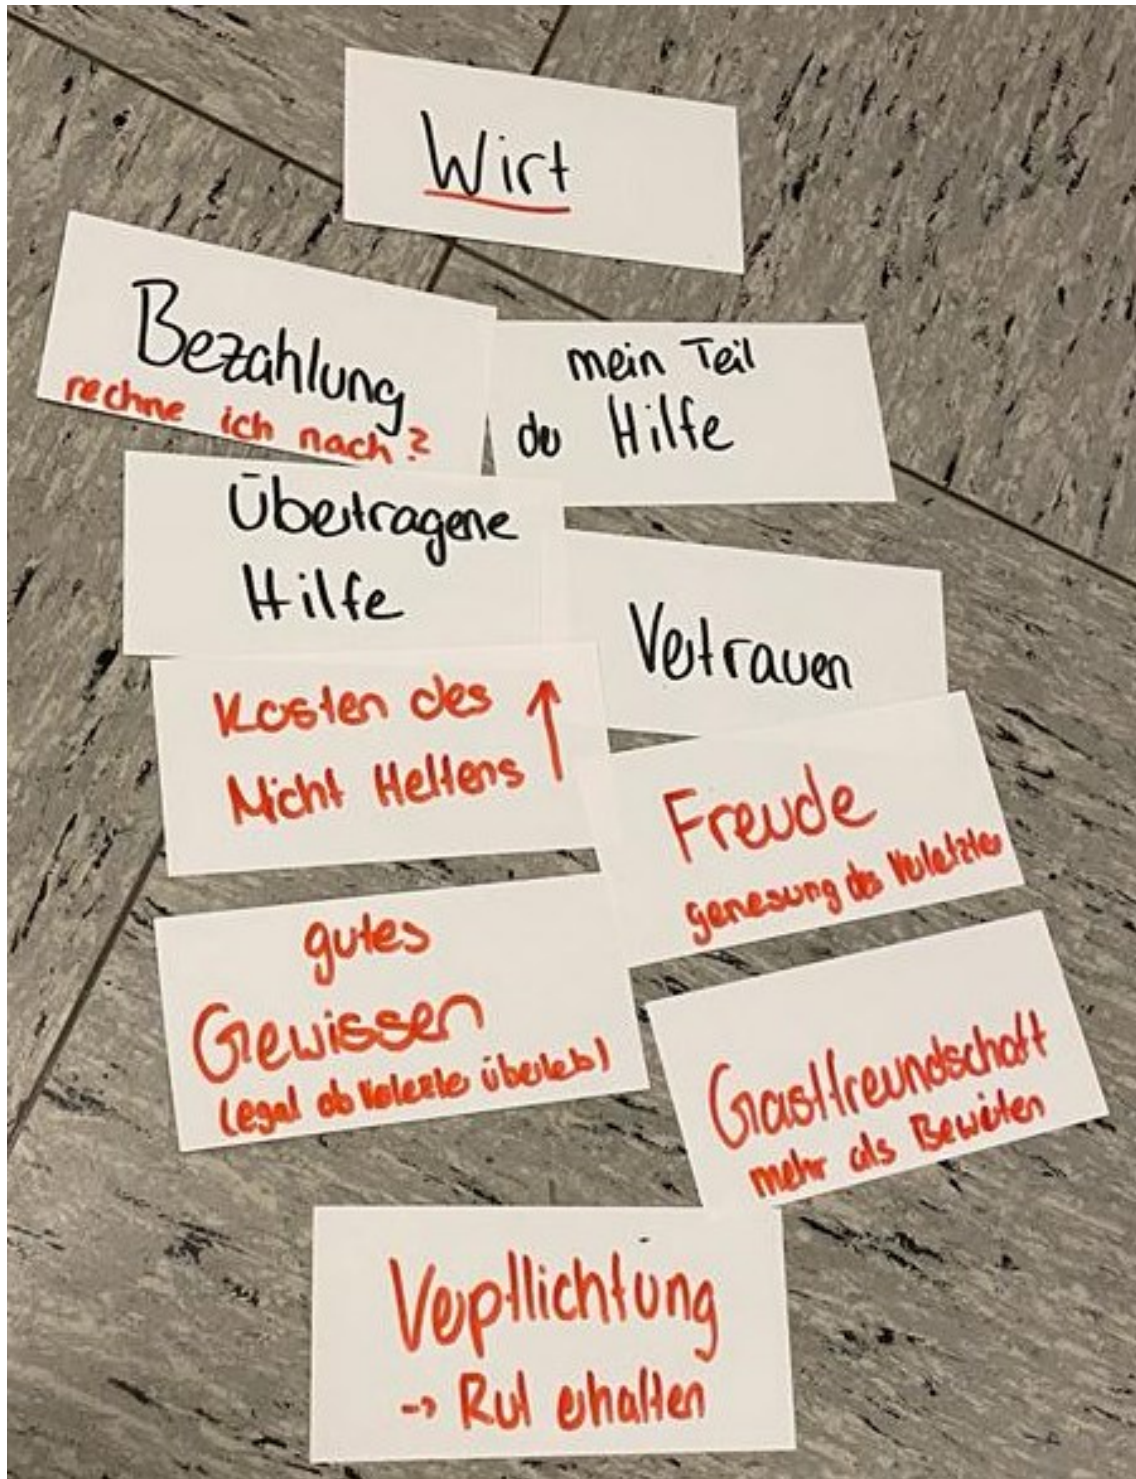 Wirt
Bezahlung
rechne ich nach?
mein Teil
du Hilfe
Übertragene
Hilfe
Vertrauen
Kosten des
Nicht Helfens ↑
Freude
genesung des Verletzten
gutes
Gewissen
(egal ob Verletzte überleb)
Gastfreundschaft
mehr als Bewirten
Verpflichtung
→ Ruf erhalten